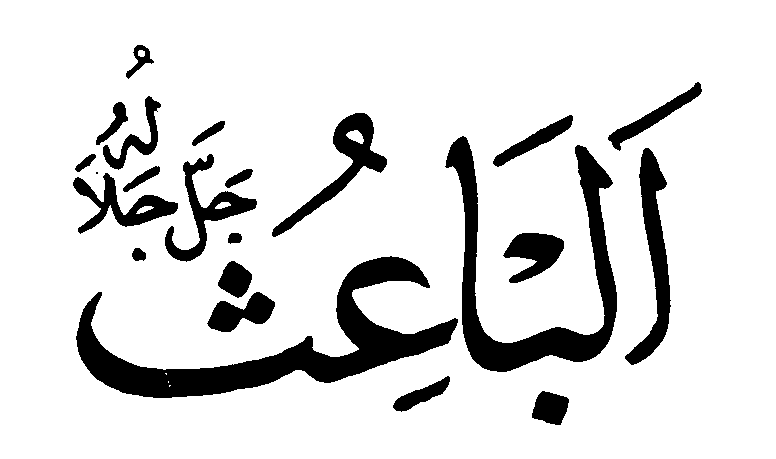 اَلْبَاعِثُ جَلَّ جَلَالُهُ